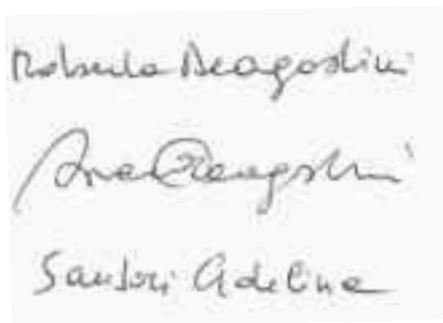 Roberta Deagostini
Deagostini
Santori Adelina